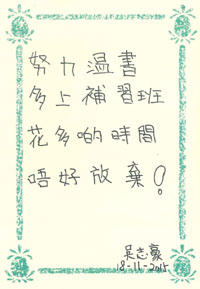 努力温書
多上補習班
花多啲時間
唔好放棄!
吳志豪
18-11-2015